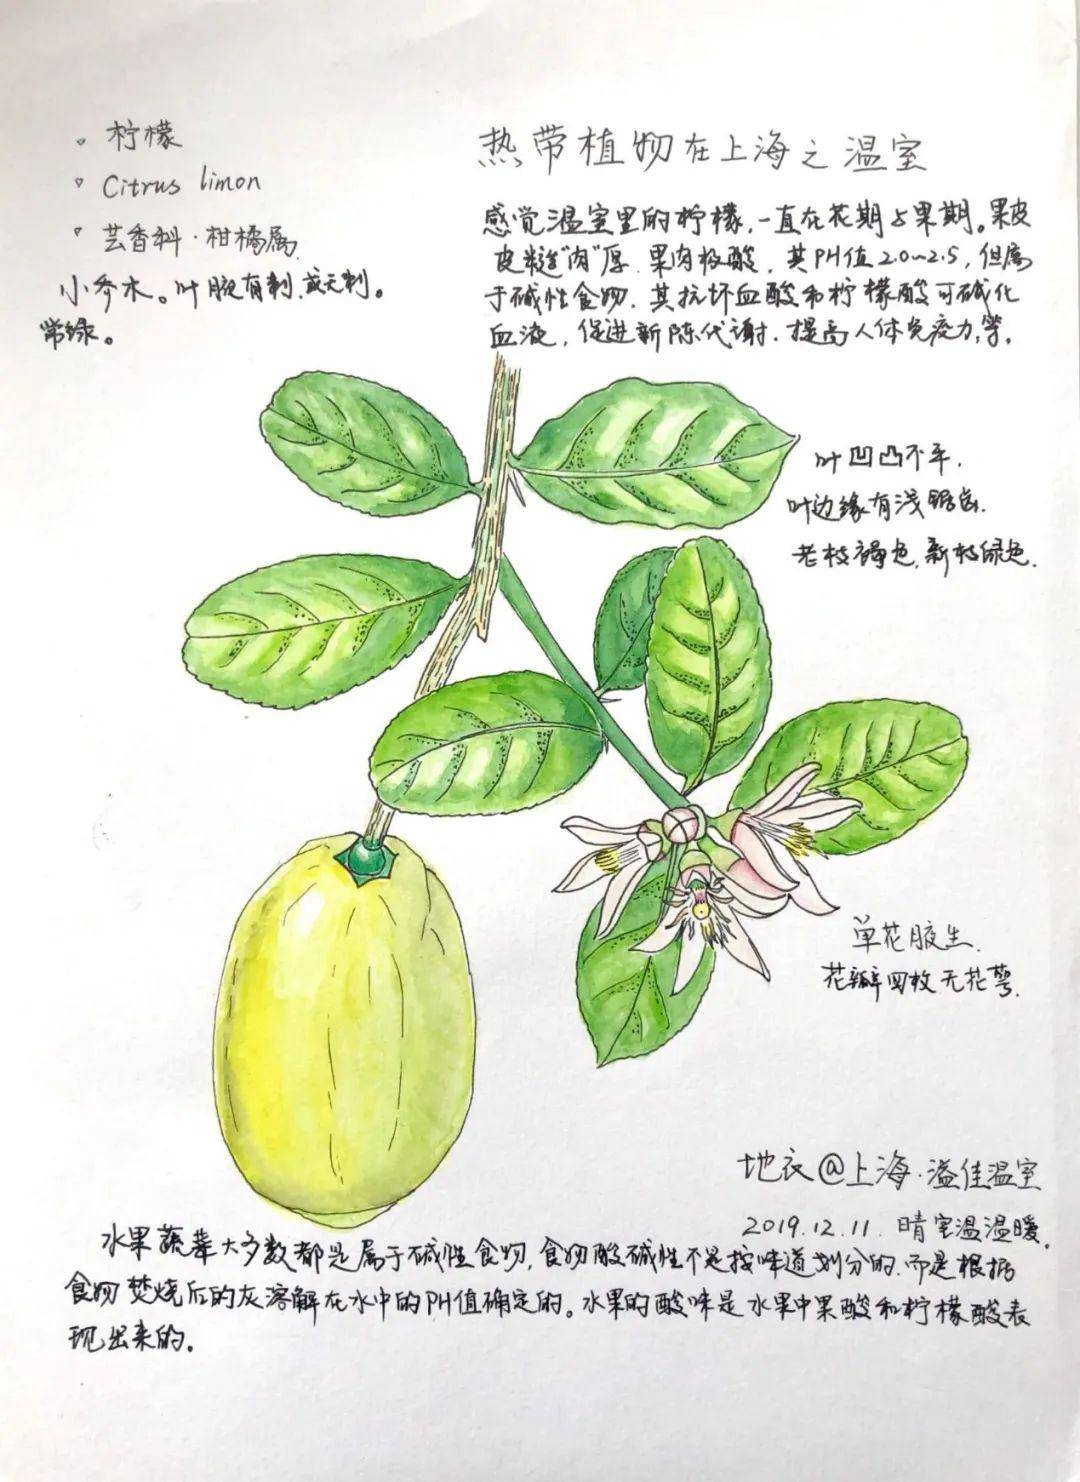 柠檬
Citrus limon
芸香科·柑橘属
小乔木。叶腋有刺,或无刷。
常绿。
热带植物在上海之温室
感觉温室里的柠檬,一直在花期与果期。果皮
皮糙"肉"厚.果肉极酸,其PH值2.0~2.5,但属
于碱性食物.其抗坏血酸和柠檬酸可碱化
血液,促进新陈代谢.提高人体免疫力,等。
叶凹凸不平.
叶边缘有浅锯齿.
老枝褐色,新枝绿色.
单花腋生.
花瓣四枚无花萼.
地衣@上海·溢佳温室
2019.12.11.晴室温温暖.
水果蔬菜大多数都是属于碱性食物,食物酸碱性不是按味道划分的.而是根据
食物焚烧后的灰溶解在水中的PH值确定的。水果的酸味是水果中果酸和柠檬酸表
现出来的。